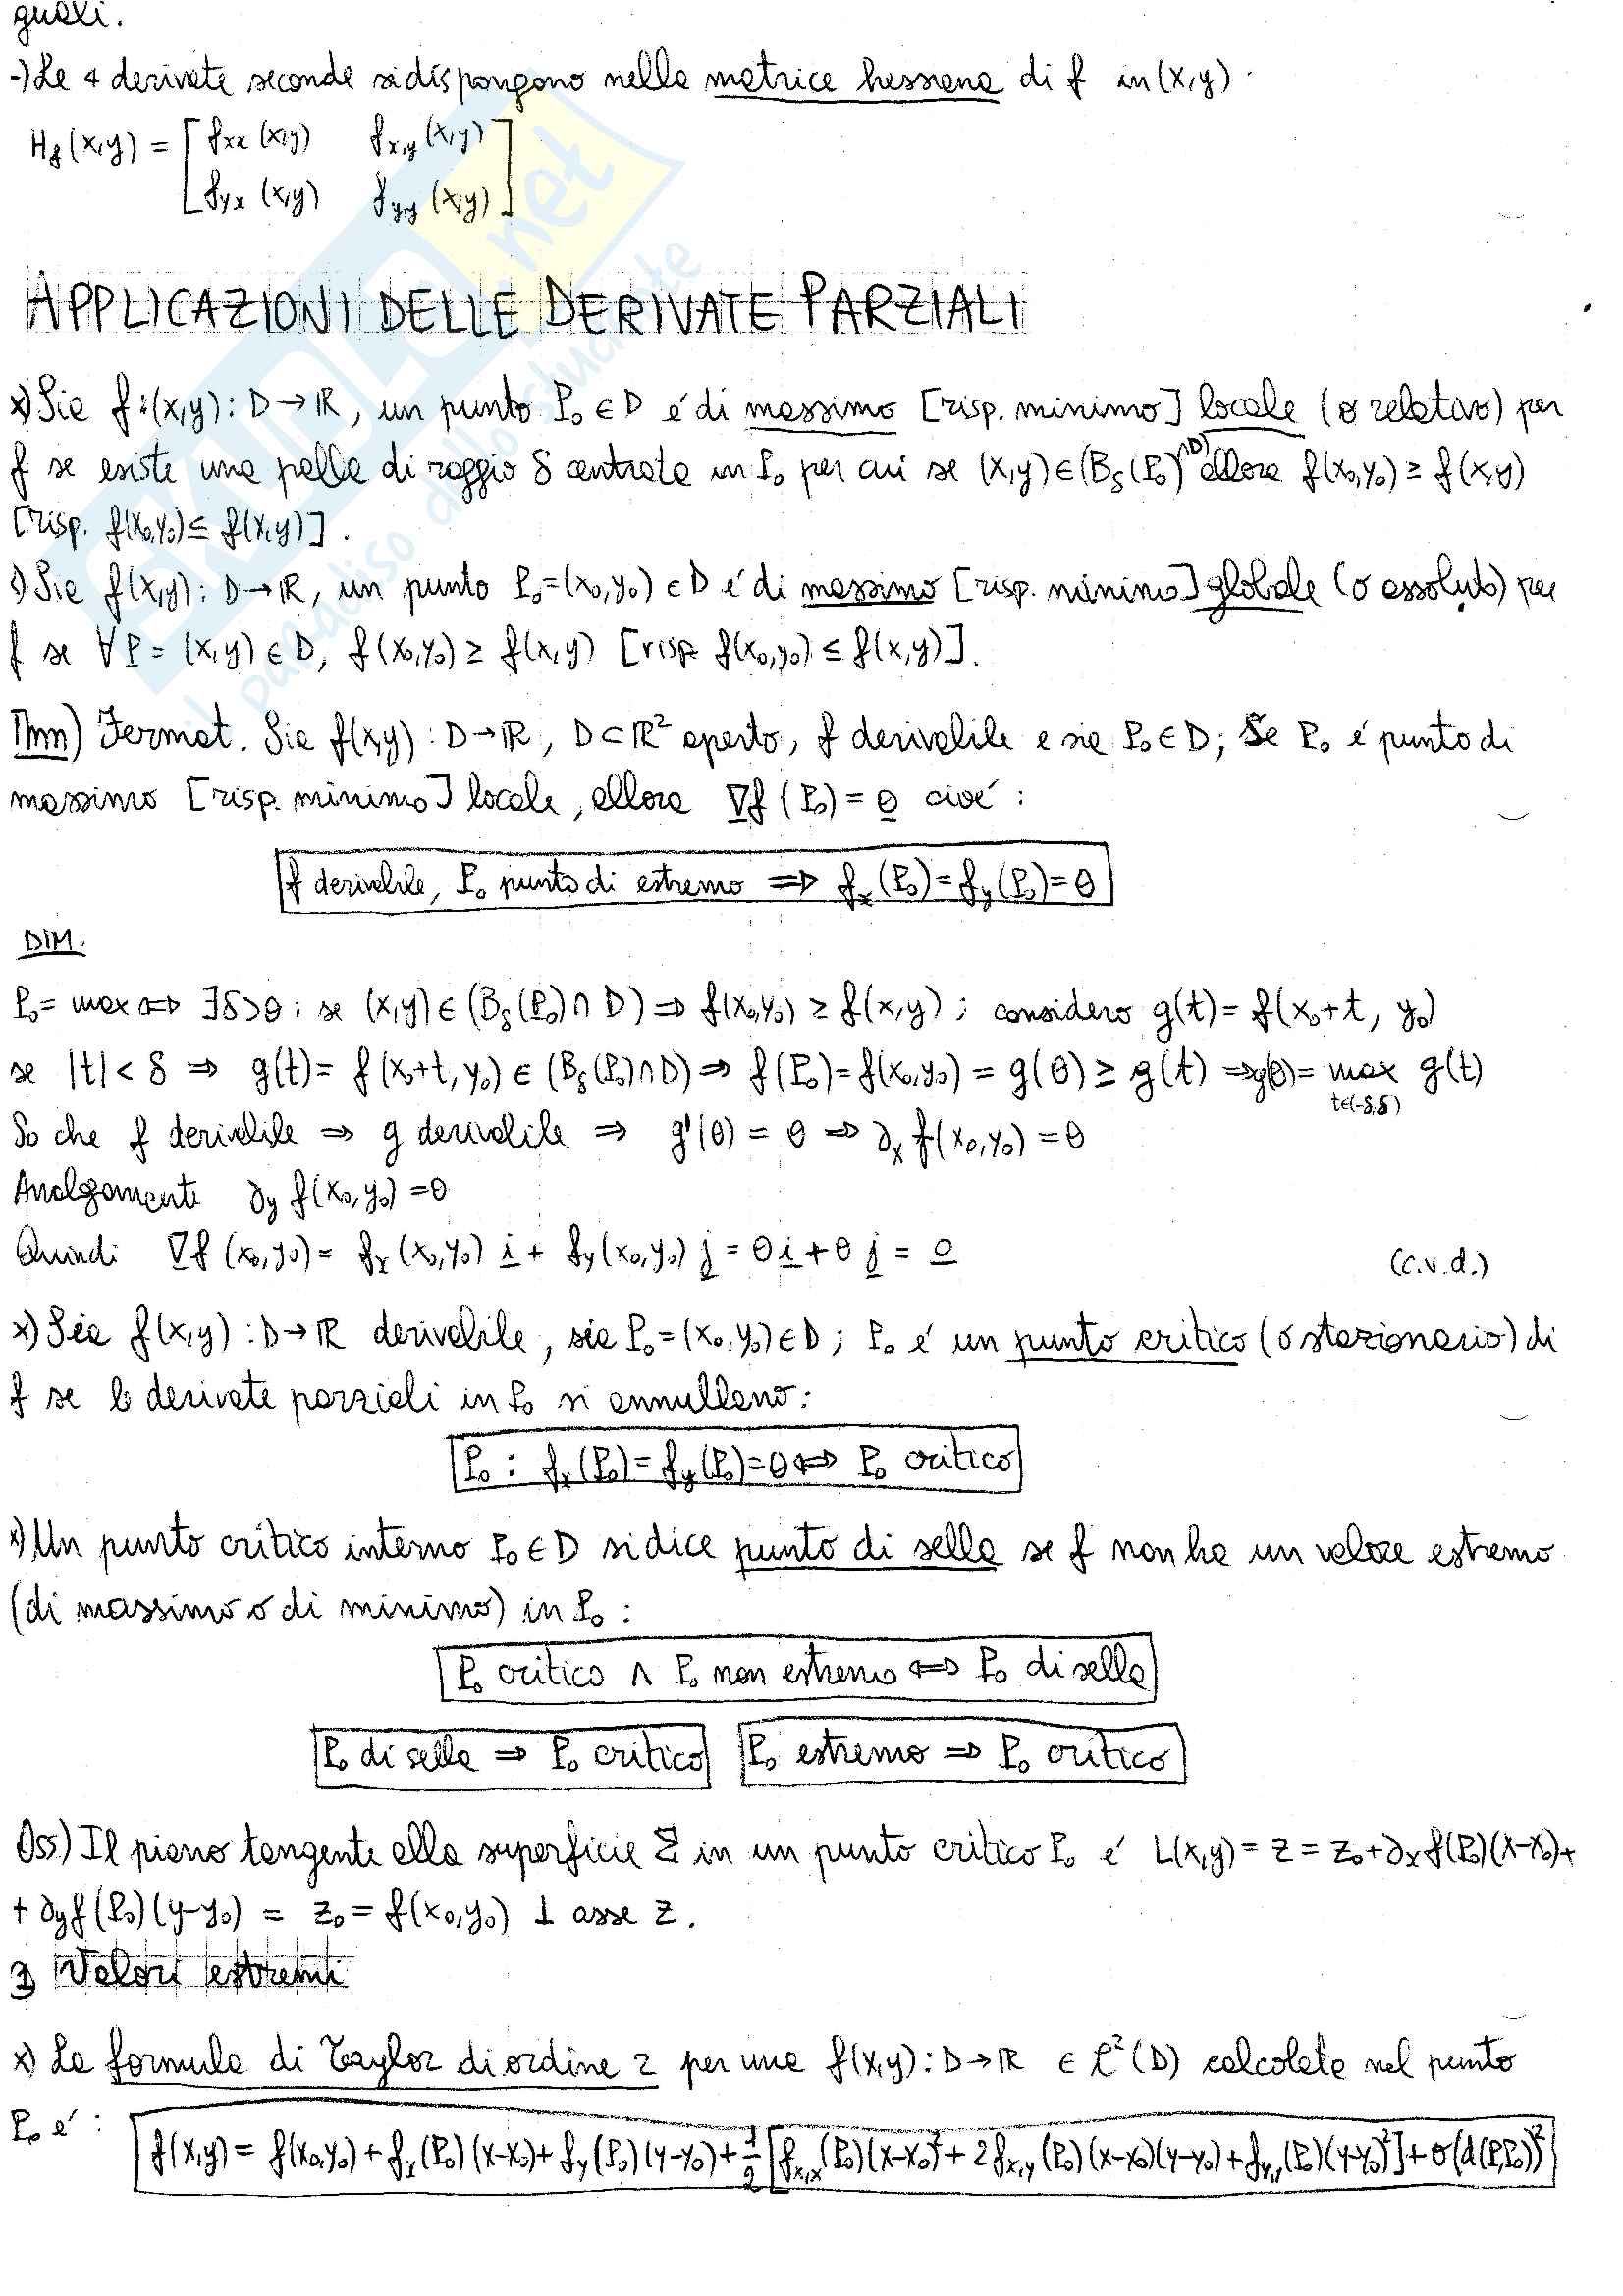 guali.
-) Le 4 derivate seconde si dispongono nella matrice hessiana di f in (x,y).
H_f(x,y) = [ f_xx(x,y)   f_x,y(x,y)
f_yx(x,y)   f_yy(x,y) ]
APPLICAZIONI DELLE DERIVATE PARZIALI
x) Sia f:(x,y): D→ℝ, un punto P₀∈D é di massimo [risp. minimo] locale (o relativo) per
f se esiste una palla di raggio δ centrata in P₀ per cui se (x,y)∈(B_δ(P₀)∩D) allora f(x₀,y₀) ≥ f(x,y)
[risp. f(x₀,y₀) ≤ f(x,y)].
x) Sia f(x,y): D→ℝ, un punto P₀=(x₀,y₀)∈D é di massimo [risp. minimo] globale (o assoluto) per
f se ∀P=(x,y)∈D, f(x₀,y₀) ≥ f(x,y) [risp f(x₀,y₀) ≤ f(x,y)].
Thm) Fermat. Sia f(x,y): D→ℝ, D⊂ℝ² aperto, f derivabile e sia P₀∈D; Se P₀ é punto di
massimo [risp. minimo] locale, allora ∇f(P₀)=0 cioé:
f derivabile, P₀ punto di estremo ⟹ f_x(P₀)=f_y(P₀)=0
DIM.
P₀= max ⟺ ∃δ>0: se (x,y)∈(B_δ(P₀)∩D) ⟹ f(x₀,y₀) ≥ f(x,y); considero g(t)=f(x₀+t, y₀)
se |t|<δ ⟹ g(t)=f(x₀+t,y₀)∈(B_δ(P₀)∩D) ⟹ f(P₀)=f(x₀,y₀)=g(0) ≥ g(t) ⟹ g(0)= max g(t)
t∈(-δ,δ)
So che f derivabile ⟹ g derivabile ⟹ g'(0)=0 ⟹ ∂_x f(x₀,y₀)=0
Analogamente ∂_y f(x₀,y₀)=0
Quindi ∇f(x₀,y₀)= f_x(x₀,y₀) i + f_y(x₀,y₀) j = 0i+0j = 0 (c.v.d.)
x) Sia f(x,y): D→ℝ derivabile, sia P₀=(x₀,y₀)∈D; P₀ é un punto critico (o stazionario) di
f se le derivate parziali in P₀ si annullano:
P₀: f_x(P₀)=f_y(P₀)=0 ⟺ P₀ critico
x) Un punto critico interno P₀∈D si dice punto di sella se f non ha un valore estremo
(di massimo o di minimo) in P₀:
P₀ critico ∧ P₀ non estremo ⟺ P₀ di sella
P₀ di sella ⟹ P₀ critico P₀ estremo ⟹ P₀ critico
Oss.) Il piano tangente alla superficie Σ in un punto critico P₀ é L(x,y)=z=z₀+∂_x f(P₀)(x-x₀)+
+ ∂_y f(P₀)(y-y₀) = z₀=f(x₀,y₀) ⊥ asse z.
Valori estremi
x) La formula di Taylor di ordine 2 per una f(x,y): D→ℝ ∈ C²(D) calcolata nel punto
P₀ é: f(x,y)= f(x₀,y₀)+f_x(P₀)(x-x₀)+f_y(P₀)(y-y₀)+½[f_x,x(P₀)(x-x₀)²+2f_x,y(P₀)(x-x₀)(y-y₀)+f_y,y(P₀)(y-y₀)²]+o(d(P,P₀))²
il paradiso dello studente